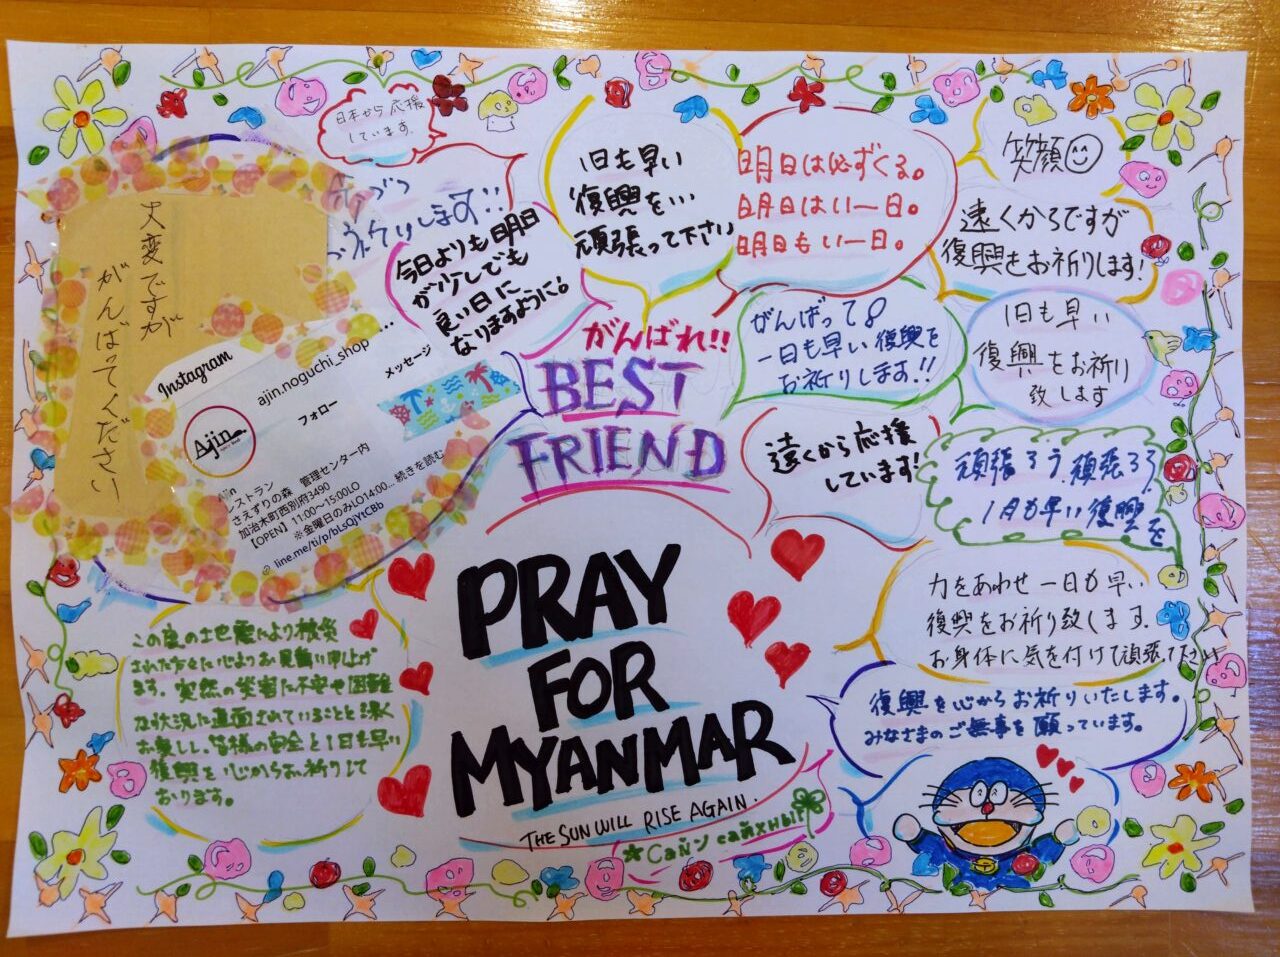 日本から応援
しています。
大変ですが
がんばってください
Instagram
ajin.noguchi_shop
Ajin
フォロー
メッセージ
Ajin
レストラン
さえずりの森 管理センター内
加治木町西別府3490
【OPEN】11:00〜15:00LO
※金曜日のみLO14:00... 続きを読む
line.me/ti/p/bLsQjYtCBb
今日よりも明日
が少しでも
良い日に
なりますように。
1日も早い
復興を…
頑張って下さい
明日は必ずくる。
明日はいー日。
明日もいー日。
笑顔
遠くからですが
復興をお祈りします!
がんばれ!!
BEST
FRIEND
がんばって
一日も早い復興を
お祈りします!!
1日も早い
復興をお祈り
致します
遠くから応援
しています!
頑張ろう、頑張ろう
1日も早い復興を
力をあわせ一日も早い
復興をお祈り致します.
お身体に気を付けて頑張って下さい
復興を心からお祈りいたします。
みなさまのご無事を願っています。
この度の地震により被災
された方々に心よりお見舞い申し上げ
ます。突然の災害に不安や困難
な状況に直面されていることを深く
お察しし、皆様の安全と1日も早い
復興を心からお祈りして
おります。
PRAY
FOR
MYANMAR
THE SUN WILL RISE AGAIN.